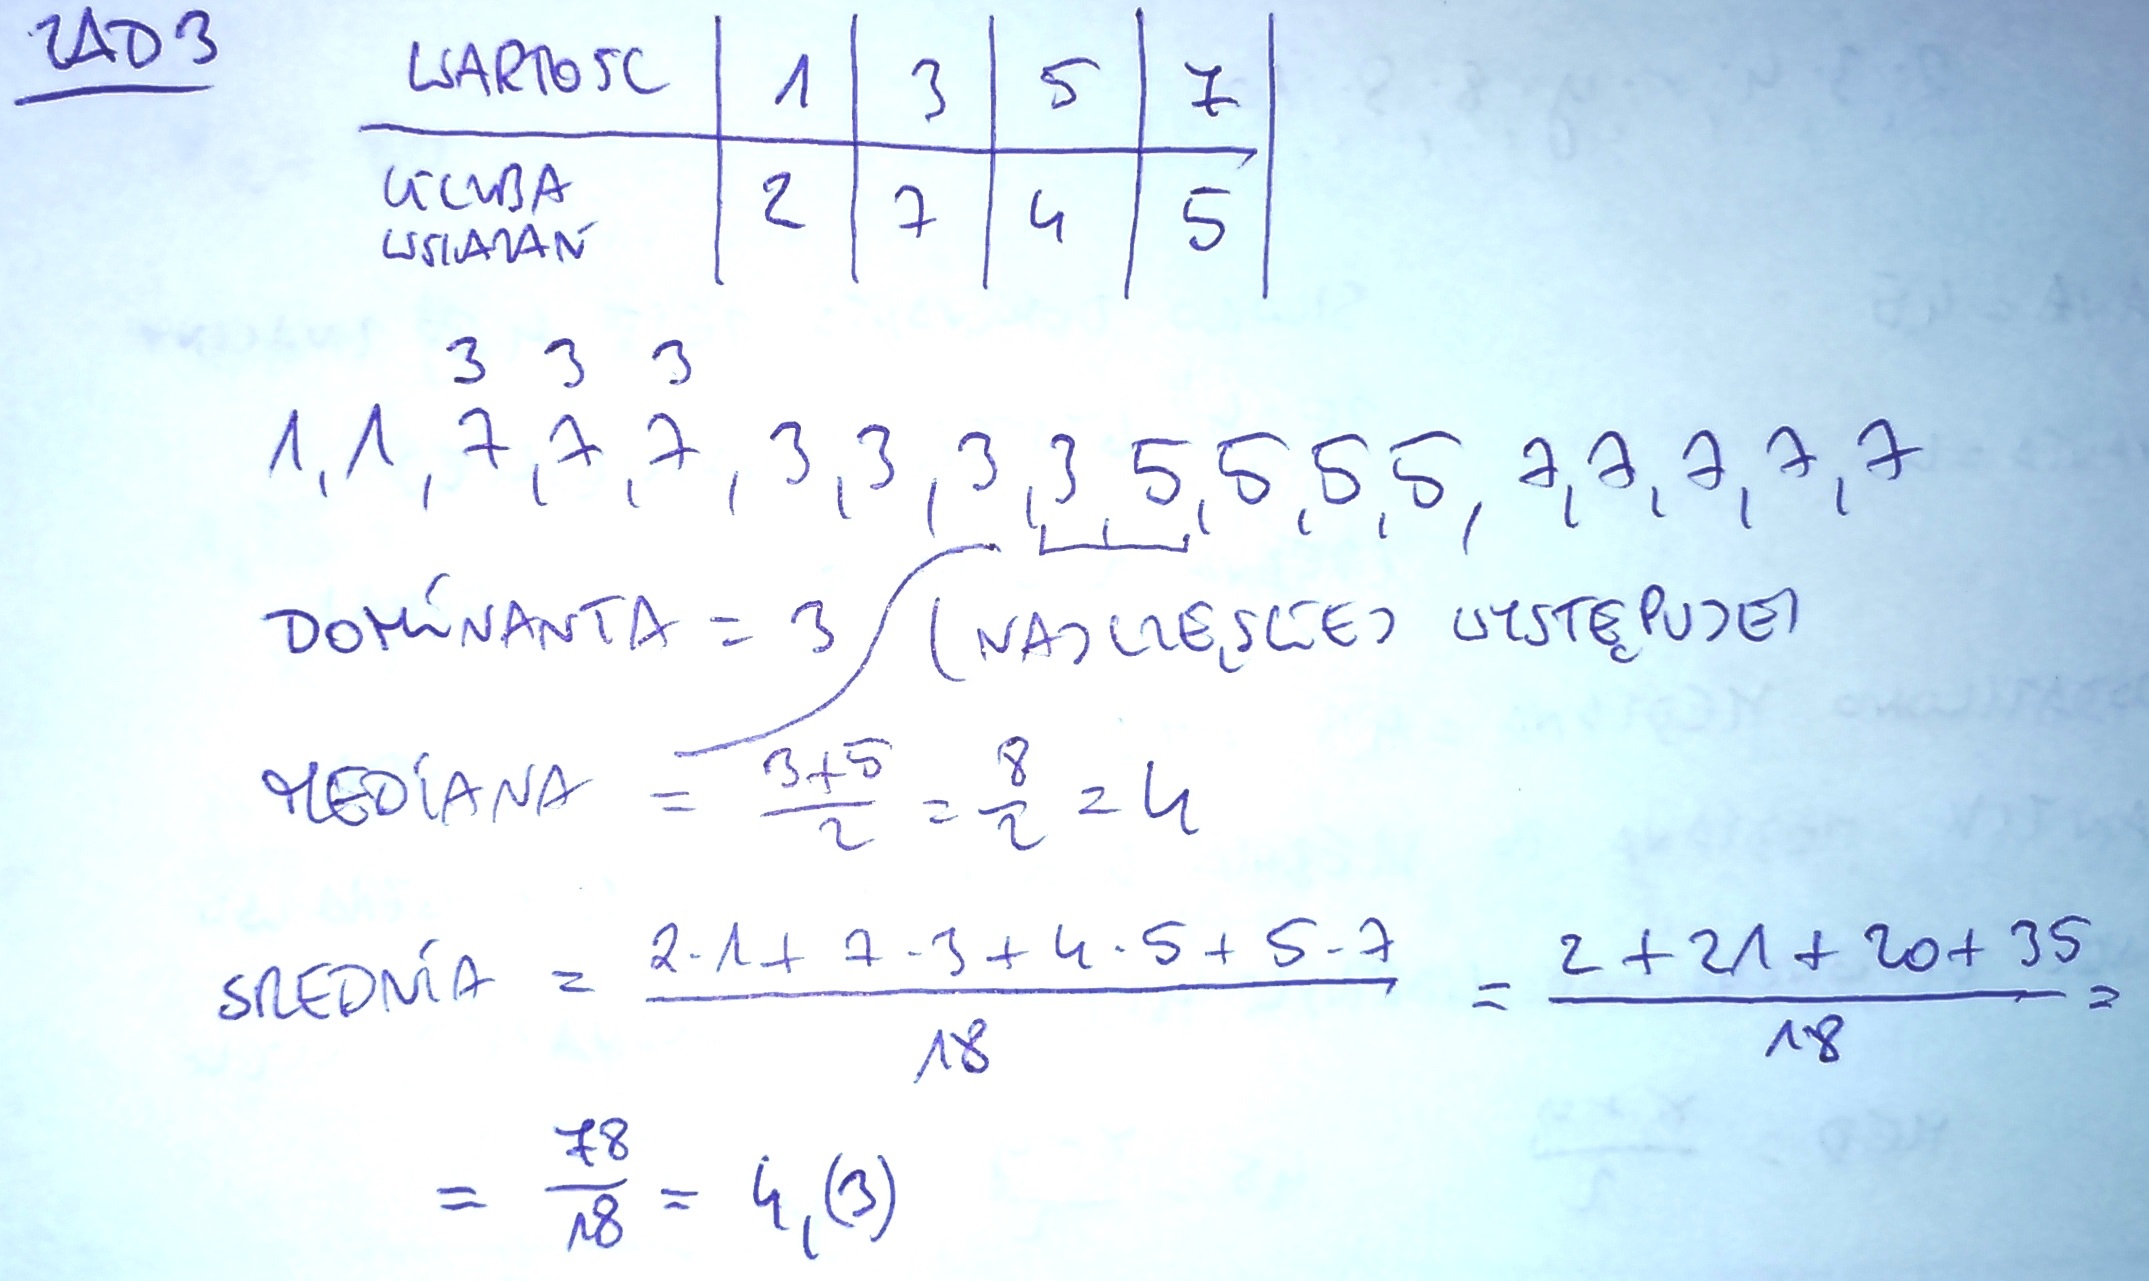 ZAD 3
WARTOŚC 1 3 5 7
LICZBA 2 7 4 5
WSKAZAŃ
3 3 3
1, 1, 7, 7, 7, 3, 3, 3, 3, 5, 5, 5, 5, 7, 7, 7, 7, 7
DOMINANTA = 3 (NAJCZĘŚCIEJ WYSTĘPUJE)
MEDIANA = 3+5/2 = 8/2 = 4
SREDNIA = 2·1+7·3+4·5+5·7/18 = 2+21+20+35/18 =
= 78/18 = 4,(3)